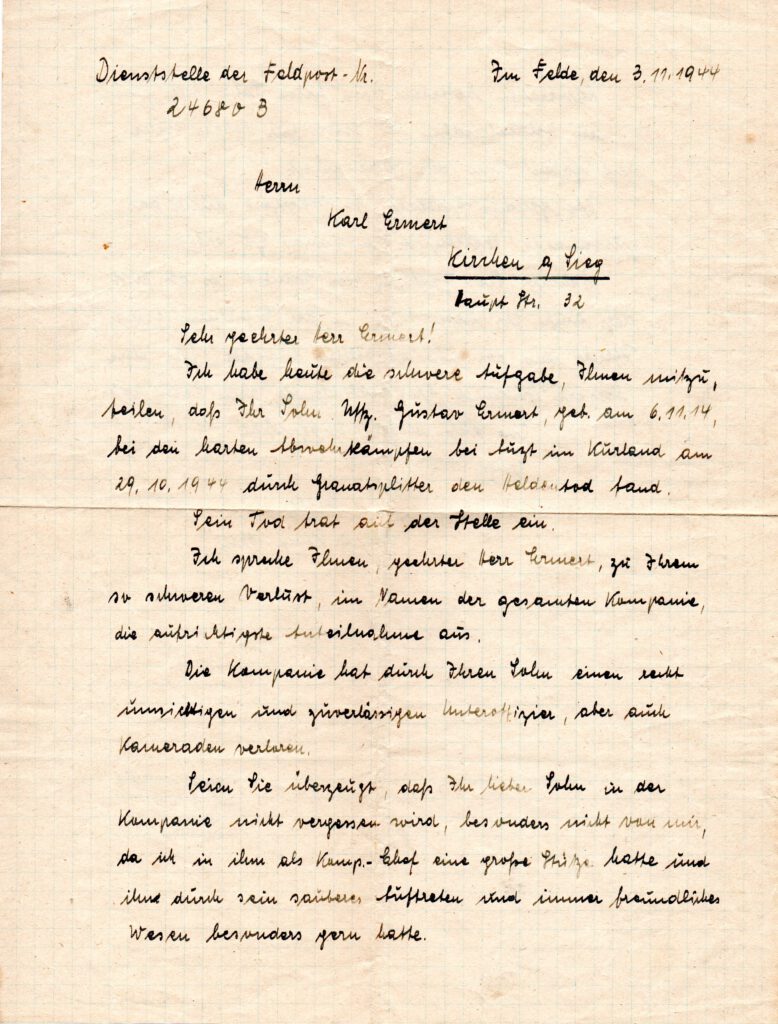 Dienststelle der Feldpost-Nr.
24680 B
Im Felde, den 3.11.1944
Herrn
Karl Ermert
Kirchen a/ Sieg
Haupt Str. 32
Sehr geehrter Herr Ermert!
Ich habe heute die schwere Aufgabe, Ihnen mitzu,
teilen, daß Ihr Sohn Uffz. Gustav Ermert, geb. am 6.11.14,
bei den harten Abwehrkämpfen bei Auzt im Kurland am
29.10.1944 durch Granatsplitter den Heldentod fand.
Sein Tod trat auf der Stelle ein.
Ich spreche Ihnen, geehrter Herr Ermert, zu Ihrem
so schweren Verlust, im Namen der gesamten Kompanie,
die aufrichtigste Anteilnahme aus.
Die Kompanie hat durch Ihren Sohn einen recht
umsichtigen und zuverlässigen Unteroffizier, aber auch
Kameraden verloren.
Seien Sie überzeugt, daß Ihr lieber Sohn in der
Kompanie nicht vergessen wird, besonders nicht von mir,
da ich in ihm als Komp.-Chef eine große Stütze hatte und
ihn durch sein sauberes Auftreten und immer freundliches
Wesen besonders gern hatte.